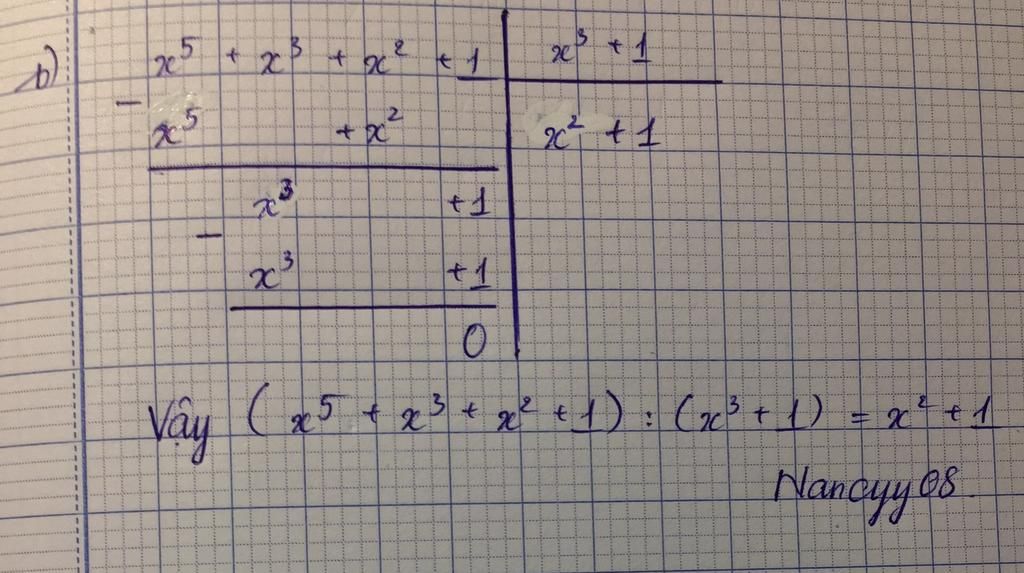 b) x⁵ + x³ + x² + 1 | x³ + 1
− x⁵ + x² | x² + 1
x³ + 1
− x³ + 1
0
Vậy (x⁵ + x³ + x² + 1) : (x³ + 1) = x² + 1
Nancyy08